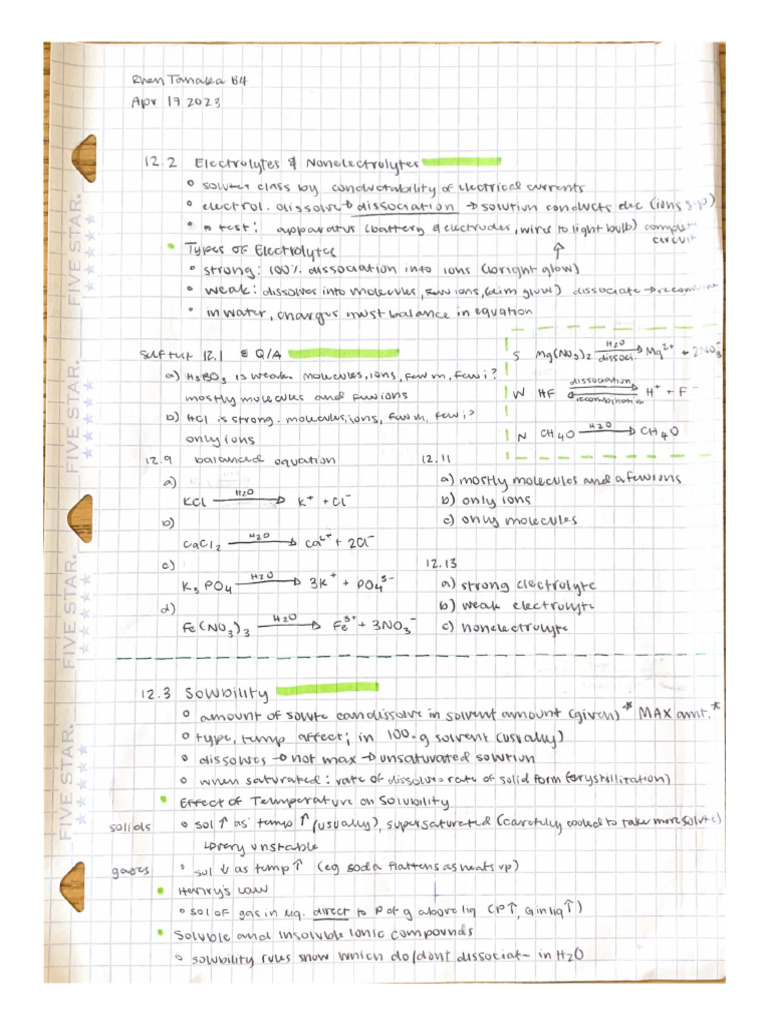 Rhen Tanaka B4
Apr 17 2023
12.2 Electrolytes & Nonelectrolytes
solutes class by conductability of electrical currents
electrol. dissolve → dissociation → solution conducts elec (ions sep)
test: apparatus (battery & electrodes, wire to light bulb) complete circuit
Types of Electrolytes
strong: 100% dissociation into ions (bright glow)
weak: dissolves into molecules, few ions, (dim glow) dissociate → recombine
in water, charges must balance in equation
Self tut 12.1 & Q/A
a) H3BO3 is weak. molecules, ions, few m, few i?
mostly molecules and few ions
b) HCl is strong. molecules, ions, few m, few i?
only ions
S Mg(NO3)2 H2O → dissoci. Mg2+ + 2NO3-
W HF dissociation ⇌ recombination H+ + F-
N CH4O H2O → CH4O
12.9 balanced equation
a)
KCl H2O → K+ + Cl-
b)
CaCl2 H2O → Ca2+ + 2Cl-
c)
K3PO4 H2O → 3K+ + PO43-
d)
Fe(NO3)3 H2O → Fe3+ + 3NO3-
12.11
a) mostly molecules and a few ions
b) only ions
c) only molecules
12.13
a) strong electrolyte
b) weak electrolyte
c) nonelectrolyte
12.3 Solubility
amount of solute can dissolve in solvent amount (given) * MAX amt. *
type, temp affect; in 100.g solvent (usually)
dissolves → not max → unsaturated solution
when saturated: rate of dissolve = rate of solid form (crystillization)
Effect of Temperature on Solubility
solids sol ↑ as temp ↑ (usually), supersaturated (carefully cooled to take more solute)
↳ very unstable
gases sol ↓ as temp ↑ (eg soda flattens as heats up)
Henry's Law
sol of gas in liq. direct to P of g above liq (P↑, G in liq ↑)
Soluble and Insoluble Ionic compounds
solubility rules show which do/dont dissociate in H2O
FIVE STAR.
FIVE STAR.
FIVE STAR.
FIVE STAR.